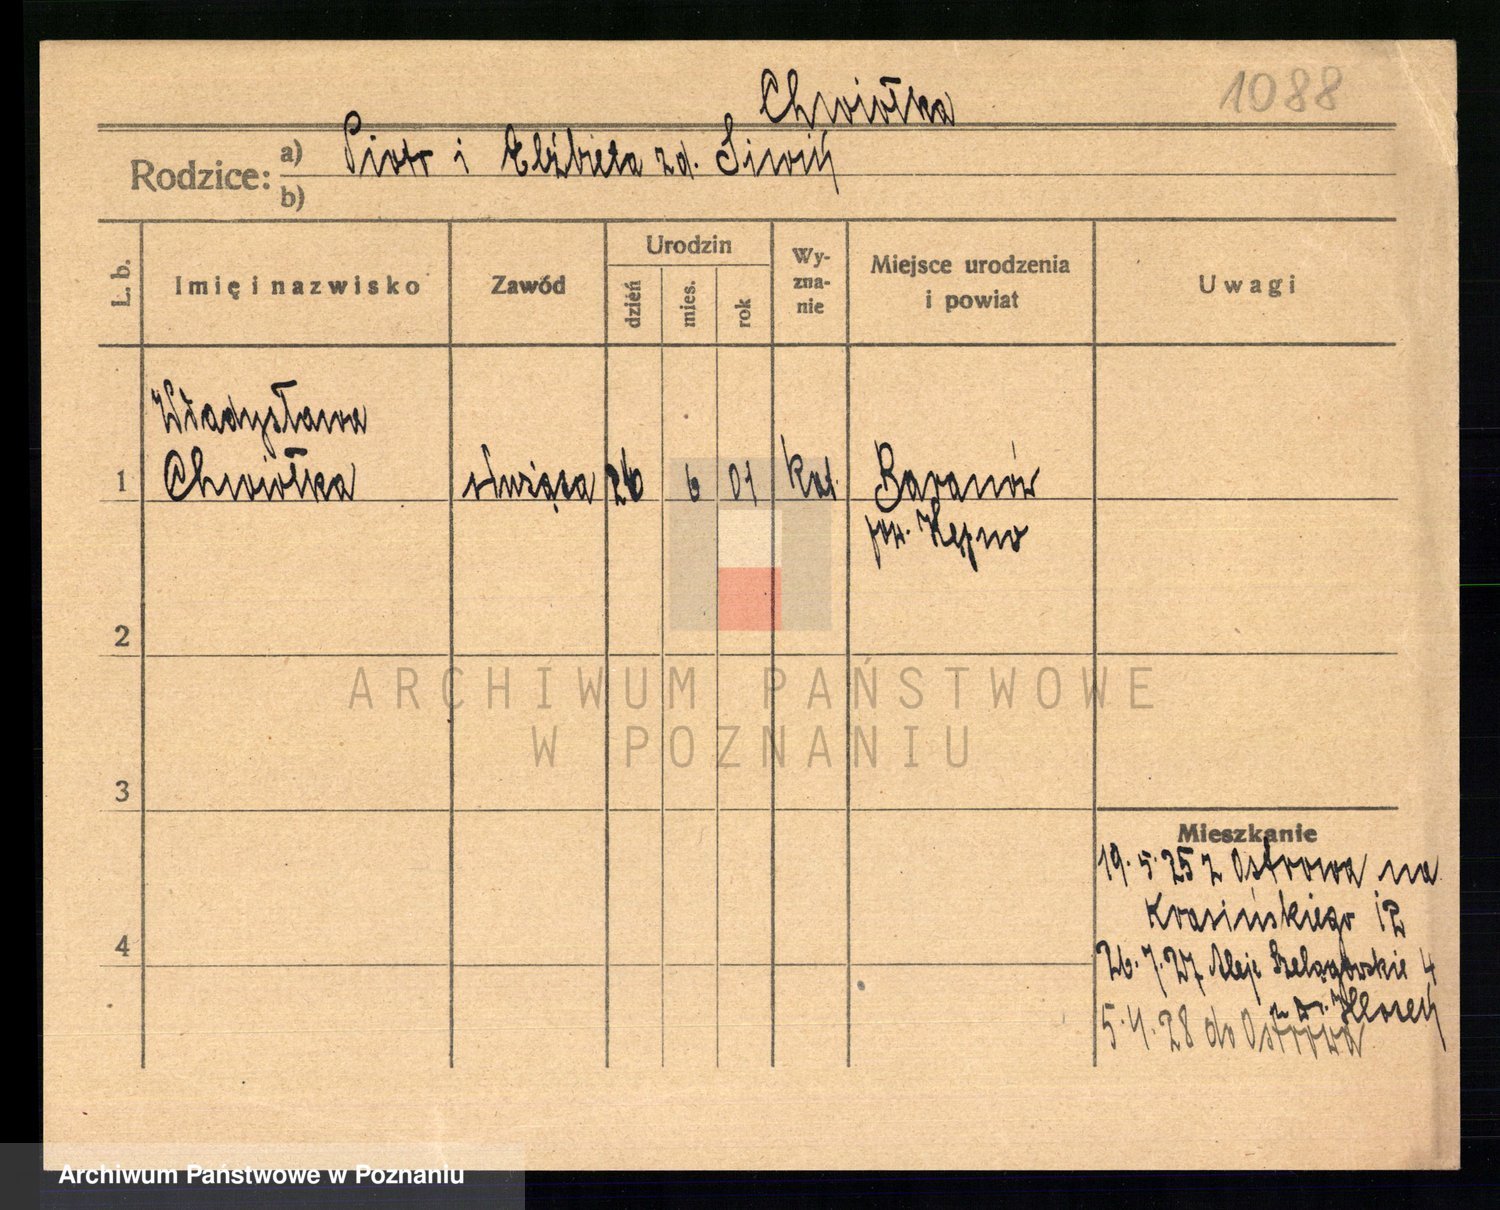 Chwiołka
1088
Rodzice:
a) Piotr i Elżbieta zd. Siwiń
b)
L. b.
Imię i nazwisko
Zawód
Urodzin
dzień
mies.
rok
Wy-
zna-
nie
Miejsce urodzenia
i powiat
Uwagi
Władysława
1 Chwiołka służąca 26 6 01 kat. Baranów
pow. Kępno
2
ARCHIWUM PAŃSTWOWE
W POZNANIU
3
Mieszkanie
19.5.25 z Ostrowa na
Krasińskiego 12
4
26.7.27 Aleje Szelągowskie 4
5.4.28 do Ostrowa
Archiwum Państwowe w Poznaniu